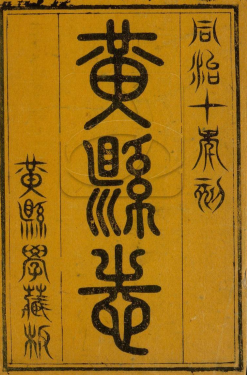 同治十年刻
黃縣志
黃縣學藏板